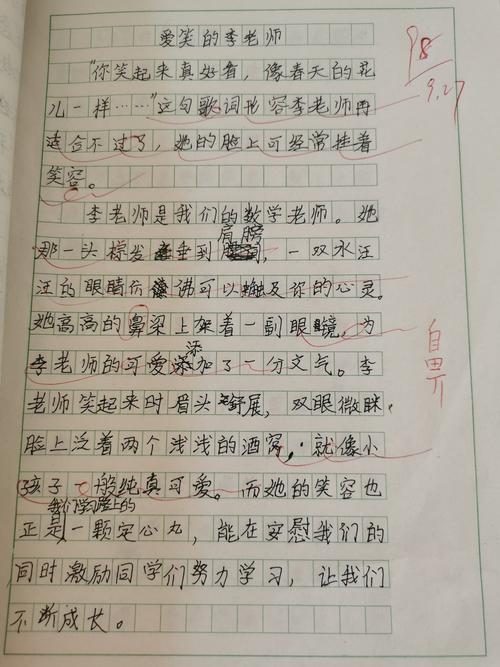 爱笑的李老师
98
9.27
“你笑起来真好看,像春天的花
儿一样……”这句歌词形容李老师再
适合不过了,她的脸上可经常挂着
笑容。
李老师是我们的数学老师。她
肩膀
那一头棕发垂到,一双水汪
汪的眼睛仿佛可以触及你的心灵。
她高高的鼻梁上架着一副眼镜,为
自
添
李老师的可爱添加了一分文气。李
老师笑起来时眉头舒展,双眼微眯,
脸上泛着两个浅浅的酒窝,就像小
孩子一般纯真可爱。而她的笑容也
我们学习路上的
正是一颗定心丸,能在安慰我们的
同时激励同学们努力学习,让我们
不断成长。